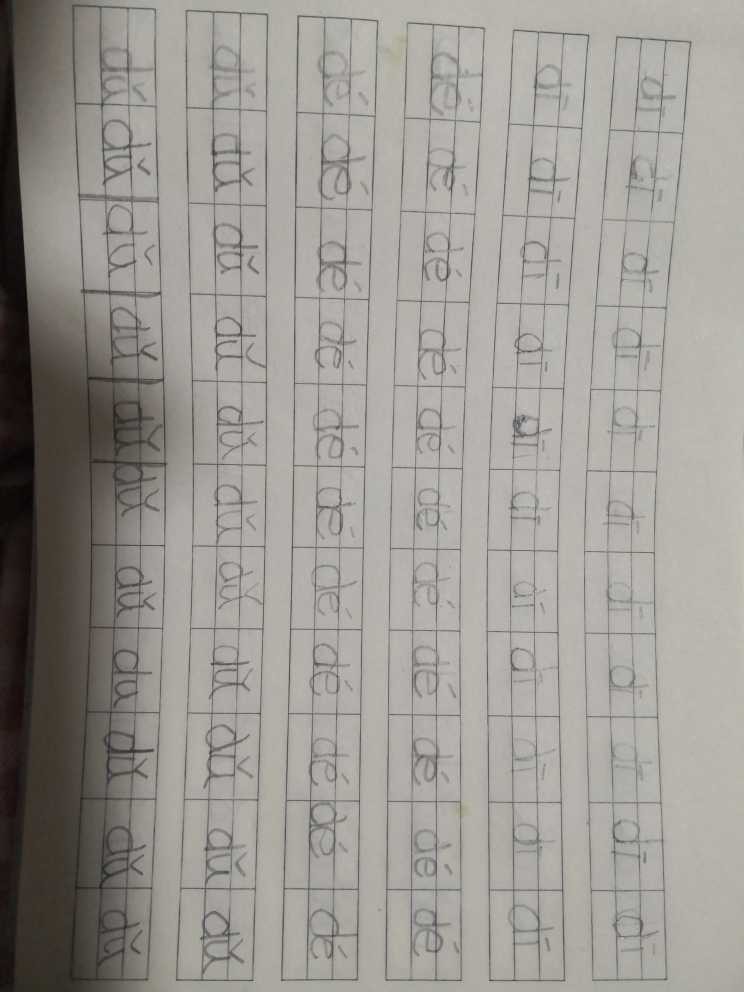 dī dī dī dī dī dī dī dī dī dī dī
dī dī dī dī dī dī dī dī dī dī dī
dé dé dé dé dé dé dé dé dé dé dé
dé dé dé dé dé dé dé dé dé dé dé
dǔ dǔ dǔ dǔ dǔ dǔ dǔ dǔ dǔ dǔ dǔ
dǔ dǔ dǔ dǔ dǔ dǔ dǔ du dǔ dǔ dǔ